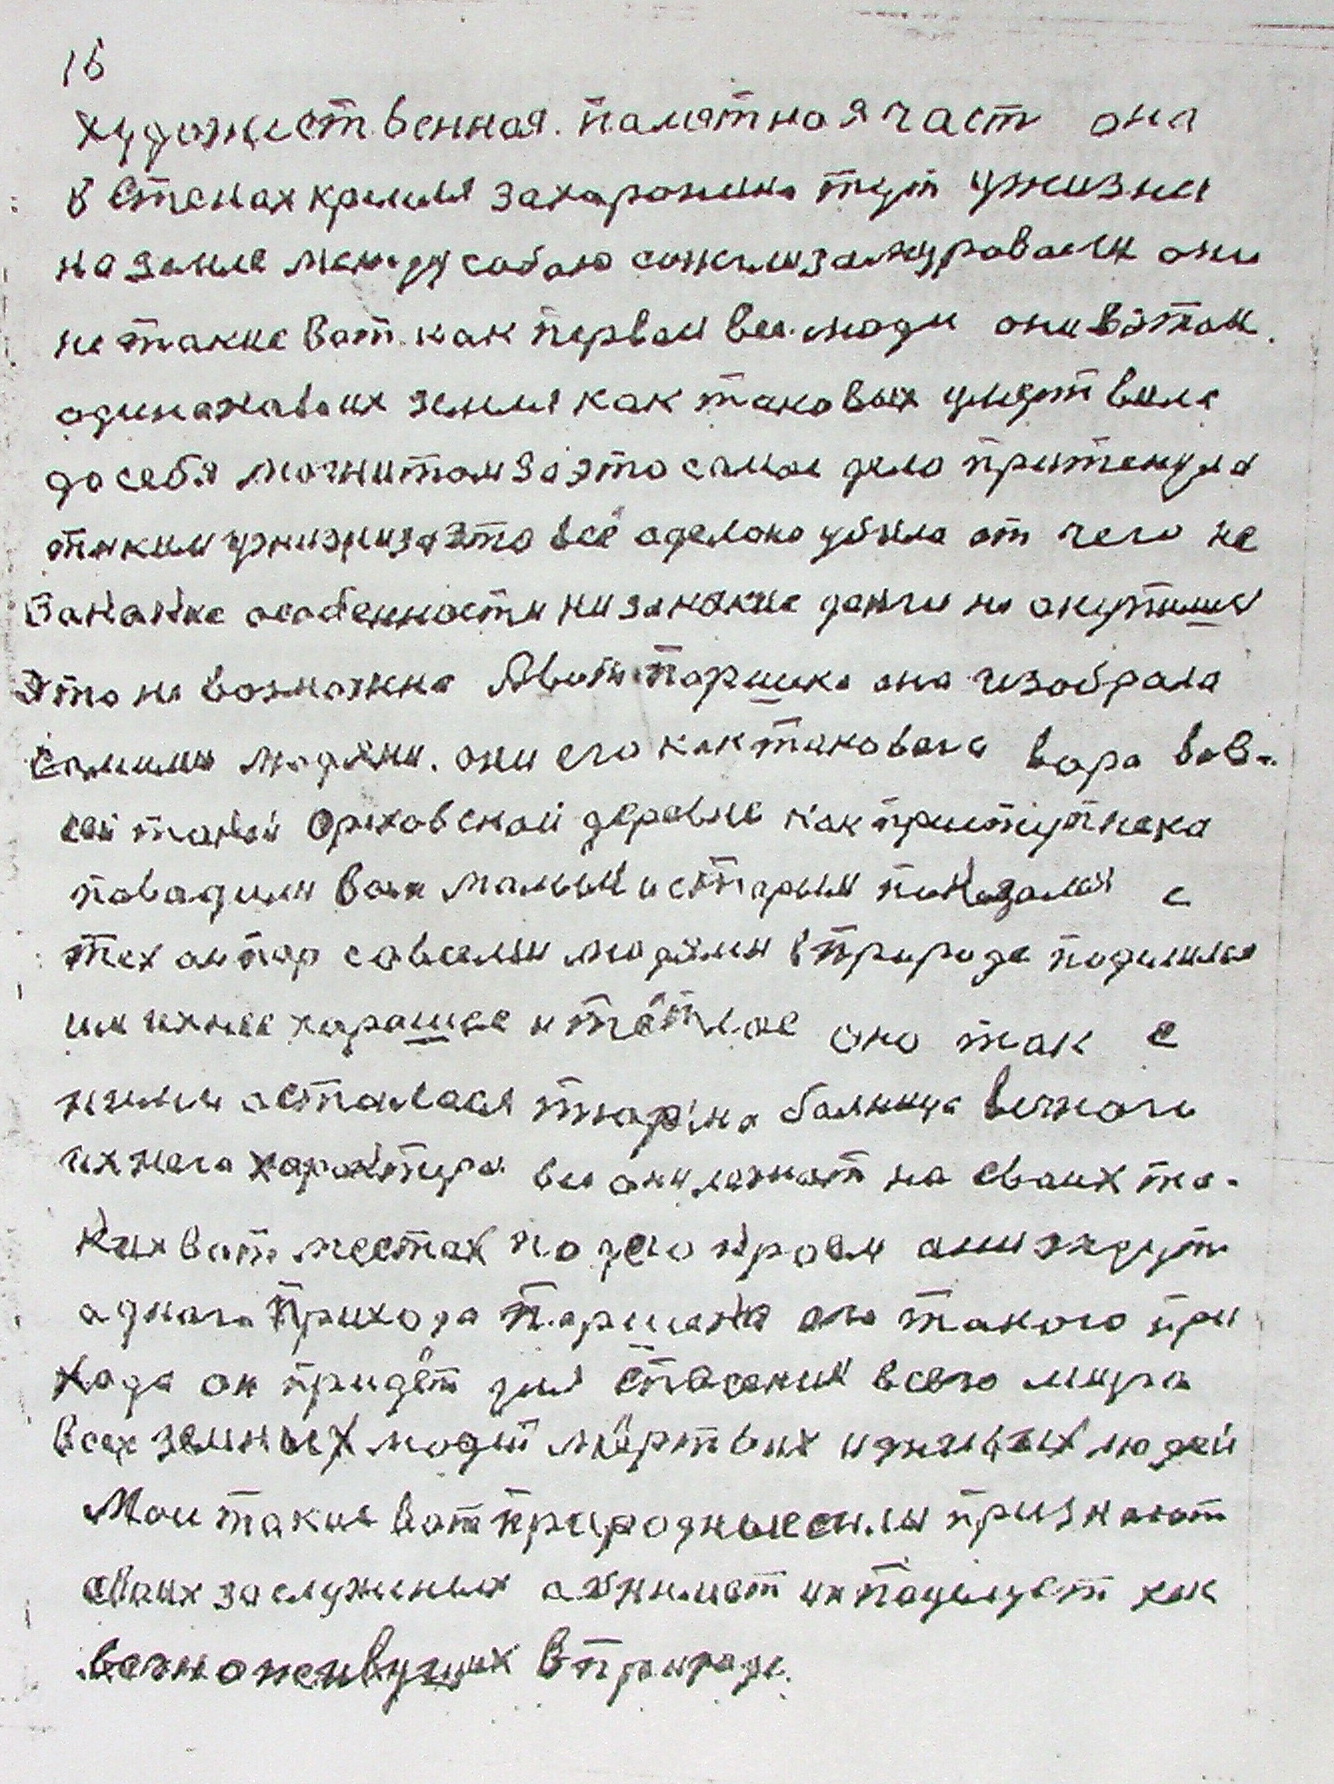 16
художественная. памятная част она
в стенах кремля захаронина тут ужизни
на земле между собою сожгли замуровали они
не такие вот как первыи вси люди они вэтом
адинаковых земля как таковых умертвила
да себя магнитом за это самае дело притенула
таким ужизни за это всё аделоно убила от чего не
Занакие особенности низанакие денги не акупишся
Это не возможна Авить Паршика она избрала
самими людями. они его как таковога вора вов-
сей такей Ореховской деревне как приступнека
повадили вси малыи истарыи показали с
тех он пор совсеми людями вприроде поделился
им ихнее харошее и тёплое оно так с
ними асталася тюрма балница вечнога
ихнега характера вси они лежат на сваих та-
ких вот местах по део краям ани ждут
аднаго прихода Паршека ога такого при
хада он придёт для спасения всего мира
всех земных людей мёртвых иживых людей
Маи такие вот природные силы признают
сваих заслуженых абнимет их поцелует как
вечноживущих вприроде.